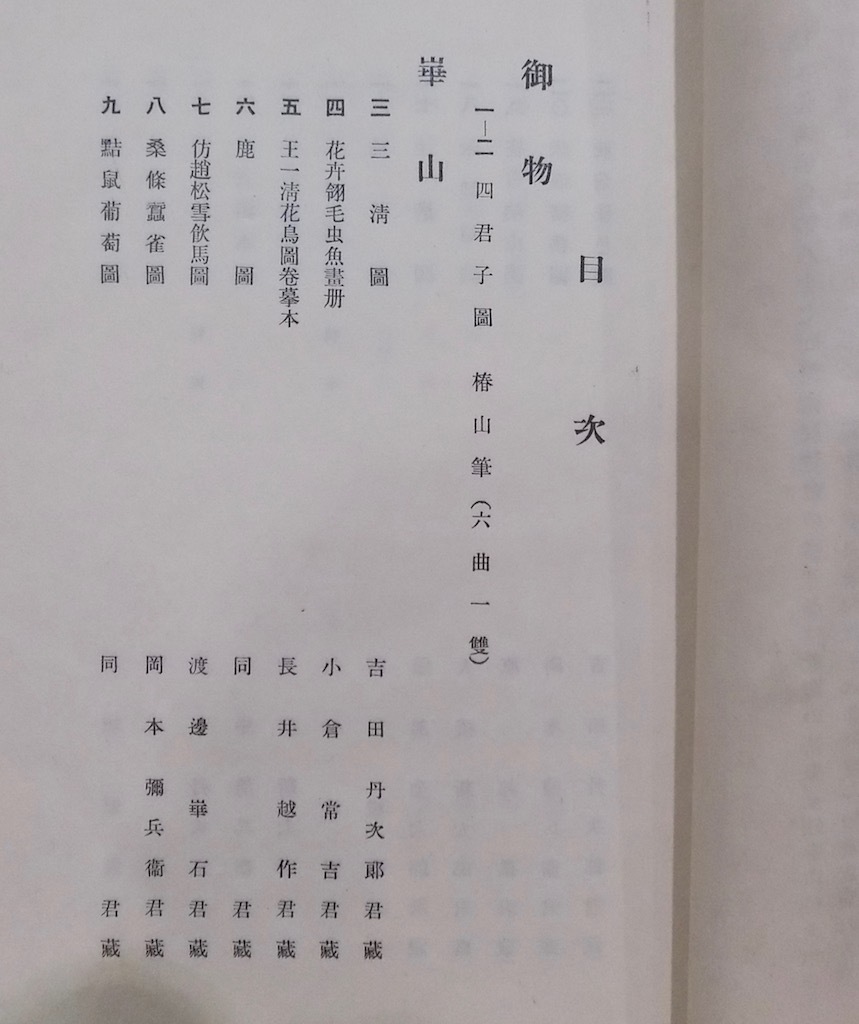 目次
御物
一—二 四君子圖 椿山筆（六曲一雙）
崋山
三 三淸圖 吉田丹次郞君藏
四 花卉翎毛虫魚畫册 小倉常吉君藏
五 王一淸花鳥圖卷摹本 長井越作君藏
六 鹿圖 同君藏
七 仿趙松雪飮馬圖 渡邊崋石君藏
八 桑條蠶雀圖 岡本彌兵衞君藏
九 黠鼠葡萄圖 同君藏